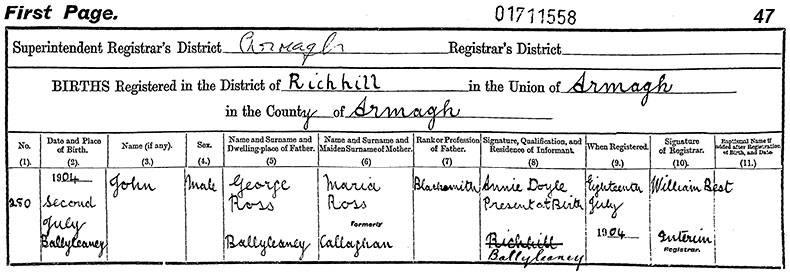 First Page. 01711558 47
Superintendent Registrar's District Armagh Registrar's District
BIRTHS Registered in the District of Richhill in the Union of Armagh
in the County of Armagh
No. (1).
Date and Place of Birth. (2).
Name (if any). (3.)
Sex. (4.)
Name and Surname and Dwelling-place of Father. (5)
Name and Surname and Maiden Surname of Mother. (6)
Rank or Profession of Father. (7)
Signature, Qualification, and Residence of Informant. (8)
When Registered. (9.)
Signature of Registrar. (10).
Baptismal Name if added after Registration of Birth, and Date. (11.)
250
1904
Second
July
Ballyleaney
John
Male
George
Ross
Ballyleaney
Maria
Ross
Formerly
Callaghan
Blacksmith
Annie Doyle
Present at Birth
Richhill
Ballyleaney
Eighteenth
July
1904
William Best
Interim
Registrar.